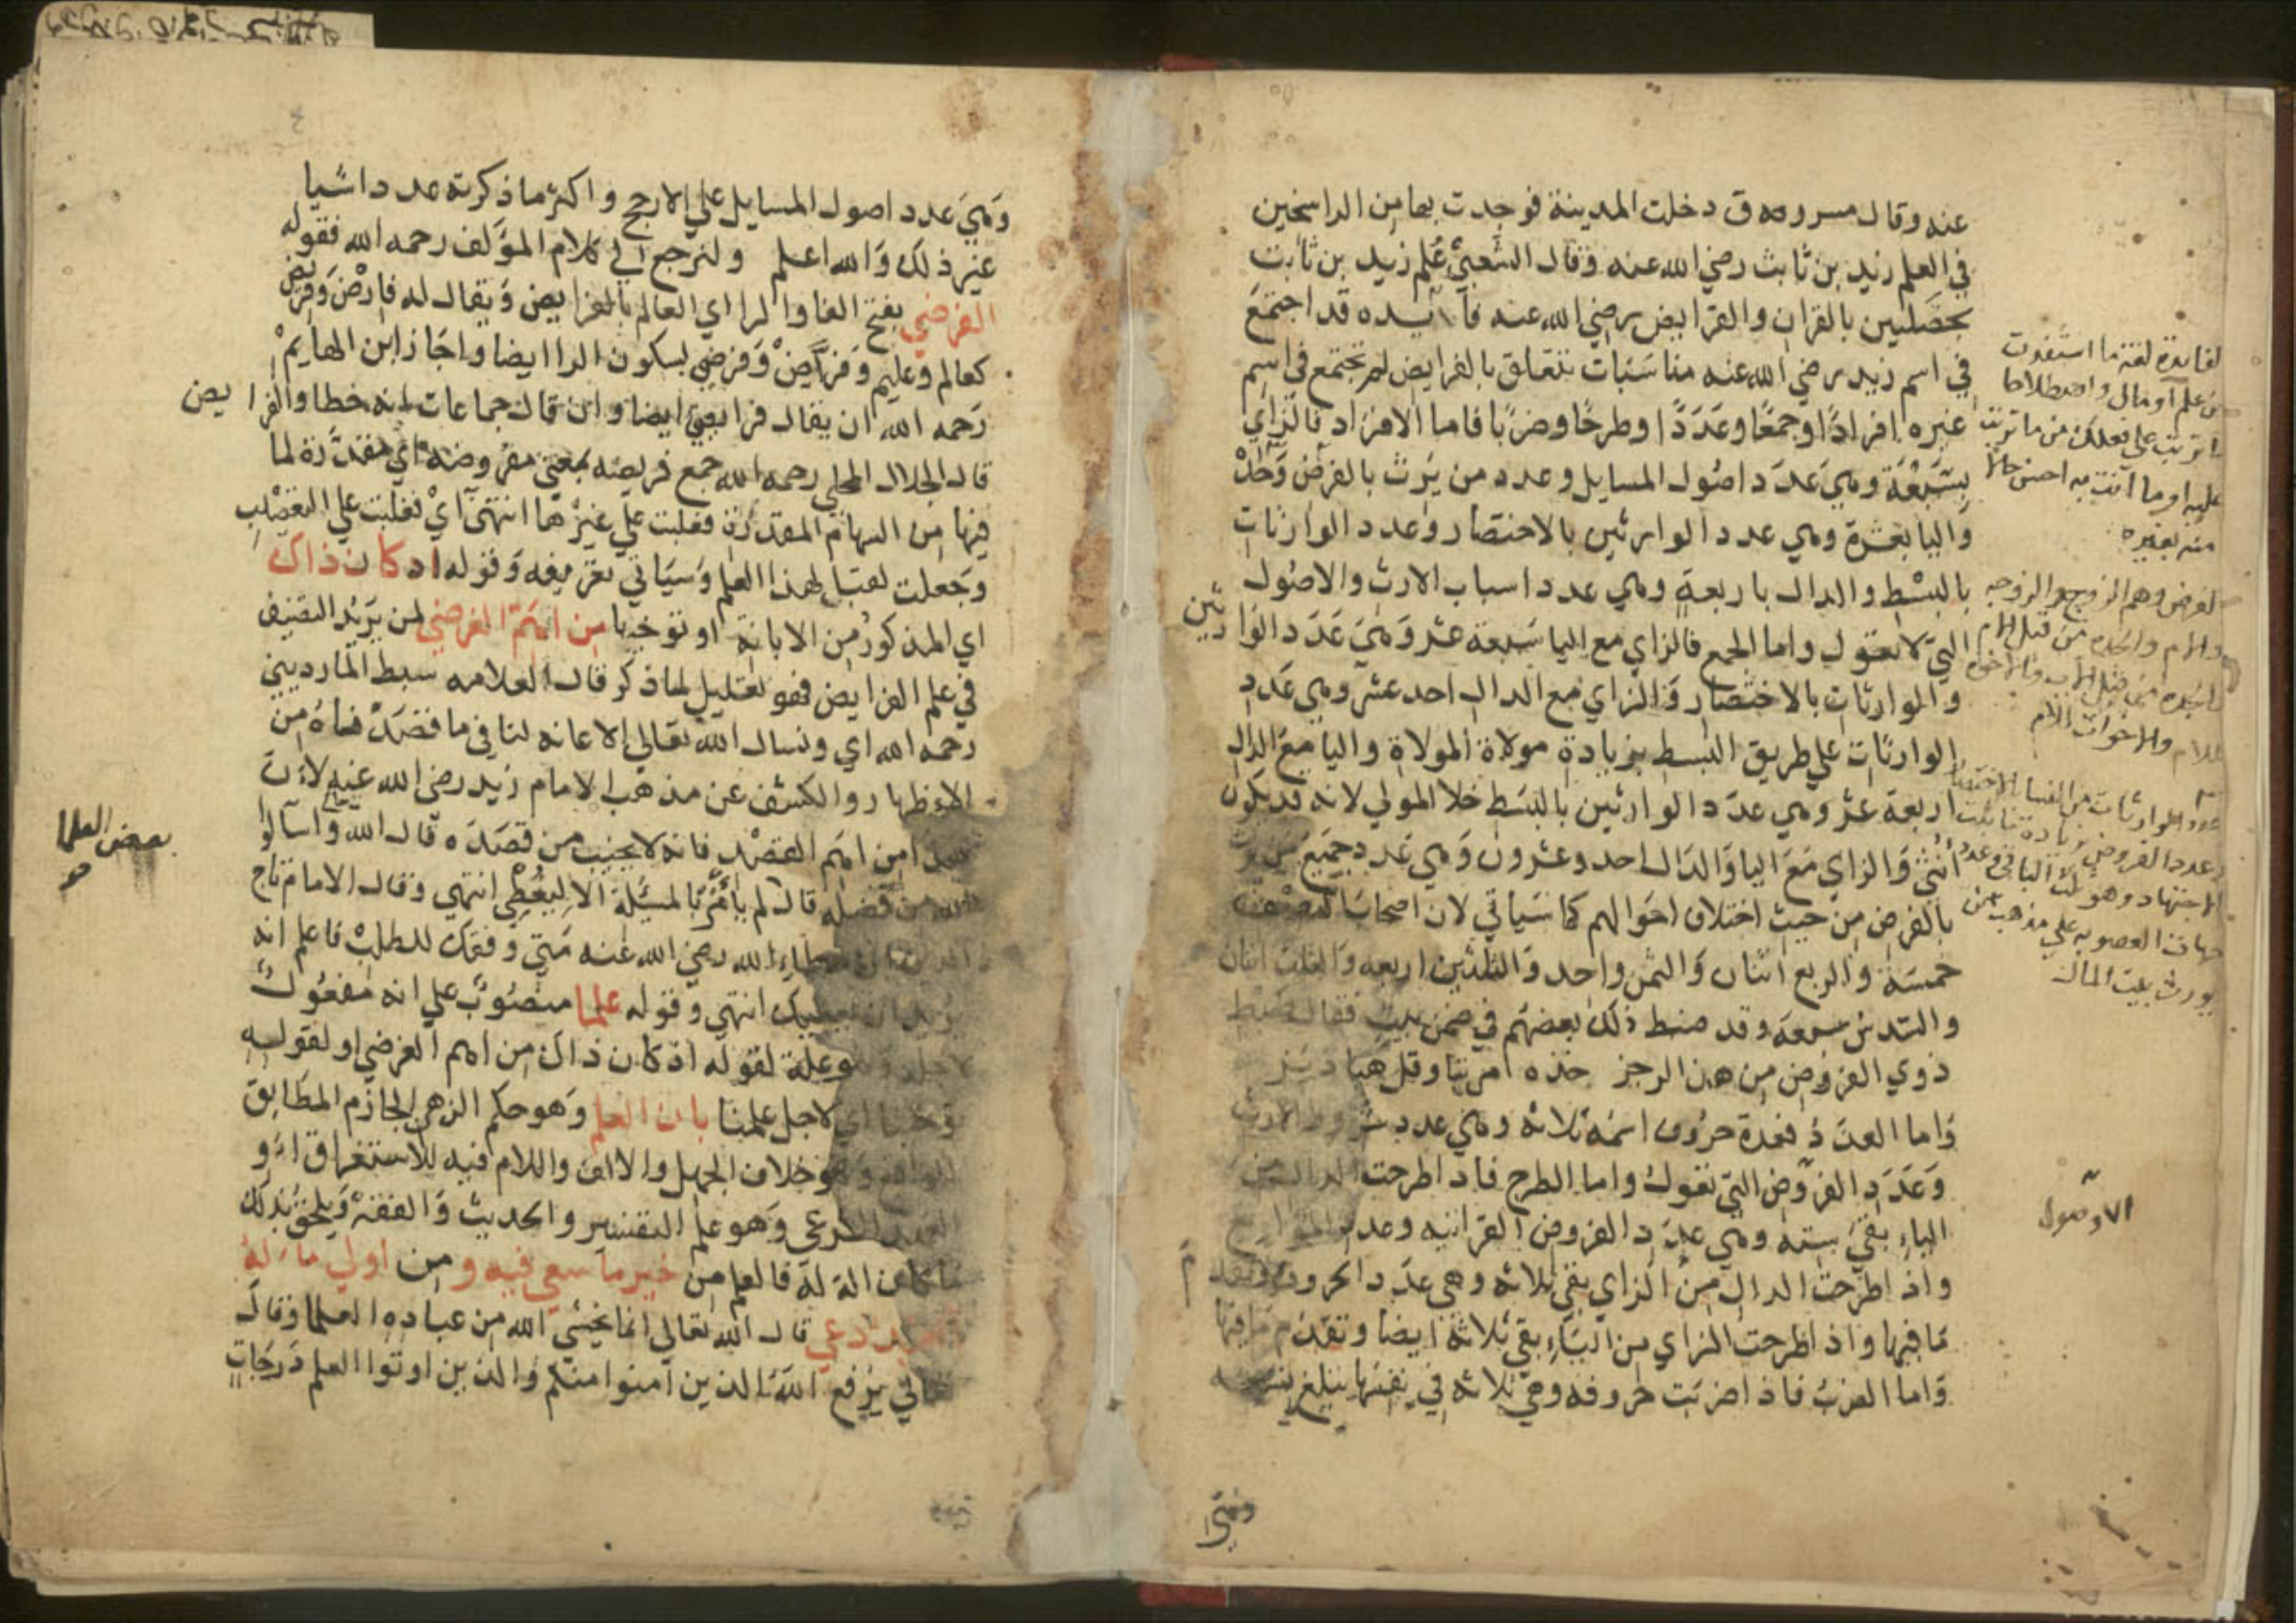 عنه وقال مسروق دخلت المدينة فوجدت بها من الراسخين
في العلم زيد بن ثابت رضي الله عنه وقال الشعبي علم زيد بن ثابت
بخصلتين بالقران والفرايض رضي الله عنه فايده قد اجتمع
في اسم زيد رضي الله عنه مناسبات تتعلق بالفرايض لم تجتمع في اسم
غيره افرادا وجمعا وعددا وطرحا وضربا فاما الافراد فالزاي
بسبعة وهي عدد اصول المسايل وعدد من يرث بالفرض وحده
واليا بعشرة وهي عدد الوارثين بالاختصار وعدد الوارثات
بالبسط والدال باربعة وهي عدد اسباب الارث والاصول
التي لا تعول واما الجمع فالزاي مع اليا سبعة عشر وهي عدد الوارثين
والوارثات بالاختصار والزاي مع الدال احد عشر وهي عدد
الوارثات علي طريق البسط بزيادة مولاة المولاة واليا مع الدال
اربعة عشر وهي عدد الوارثين بالبسط خلا المولي لانه قد يكون
انثي والزاي مع اليا والدال احد وعشرون وهي عدد جميع من يرث
بالفرض من حيث اختلاف احوالهم كما سياتي لان اصحاب النصف
خمسة والربع اثنان والثمن واحد والثلثين اربعه والثلث اثنان
والسدس سبعة وقد ضبط ذلك بعضهم في ضمن بيت فقال ضبط
ذوي الفروض من هذا الرجز خذه مرتبا وقل هبا دبز
واما العدد فعدة حروف اسمه ثلاثة وهي عدد شروط الارث
وعدد الفروض التي تعول واما الطرح فاذا طرحت الدال من
الياء بقي ستة وهي عدد الفروض القرانيه وعدد الموانع
واذ اطرحت الدال من الزاي بقي ثلاثة وهي عدد الحروف وتقدم
ما فيها واذ اطرحت الزاي من الياء بقي ثلاثة ايضا وتقدم ما فيها
واما الضرب فاذ اضربت حروفه وهي ثلاثة في نفسها تبلغ تسعه
لفايدة لغة ما استفدت
من علم او مال واصطلاحا
ما ترتب علي فعلك من ما ترتب
عليه او ما انت به احسن حالا
منه بغيره
الفرض وهم الزوج والزوجه
والام والجده من قبل الام
والجده من قبل الاب والاخ
للام والاخوات الام
الاصول
وهي
وهي عدد اصول المسايل علي الارجح واكثر ما ذكرته عدد اشيا
غير ذلك والله اعلم ولنرجع الي كلام المؤلف رحمه الله فقوله
الفرضي بفتح الفا والرا اي العالم بالفرايض ويقال له فارض وفريض
كعالم وعليم وفراض وفرضي بسكون الرا ايضا واجاز ابن الهايم
رحمه الله ان يقال فرايضي ايضا وان قال جماعات انه خطا والفرايض
قال الجلال المحلي رحمه الله جمع فريضه بمعني مفروضه اي مقدرة لما
فيها من السهام المقدرة فغلبت علي غيرها انتهي اي فغلبت علي التعصيب
وجعلت لقبا لهذا العلم وسياتي تعريفه وقوله اذ كان ذاك
اي المذكور من الابانة او توخيها من اهم الغرض لمن يريد التصنيف
في علم الفرايض فهو تعليل لما ذكر قال العلامه سبط المارديني
رحمه الله اي ونسال الله تعالي الاعانه لنا في ما قصدناه من
الاظهار والكشف عن مذهب الامام زيد رضي الله عنه لان
من اهم القصد فانه لا يخيب من قصده قال الله واسألوا
الله من فضله قال لم يأمر بالمسئلة الا ليعطي انتهي وقال الامام تاج
عطاء الله رضي الله عنه متي وفقك للطلب فاعلم انه
يريد ان يعطيك انتهي وقوله علما منصوب علي انه مفعول
لاجله وهو علة لقوله اذ كان ذاك من اهم الغرض او لقوله
توخيا اي لاجل علمنا بان العلم وهو حكم الذهن الجازم المطابق
للواقع وهو خلاف الجهل والالف واللام فيه للاستغراق او
للعهد الشرعي وهو علم التفسير والحديث والفقه ويلحق بذلك
ما كان الة له فالعلم من خير ما سعي فيه ومن اولي ما له
العبد دعي قال الله تعالي انما يخشي الله من عباده العلما وقال
تعالي يرفع الله الذين امنوا منكم والذين اوتوا العلم درجات
بعض العلما